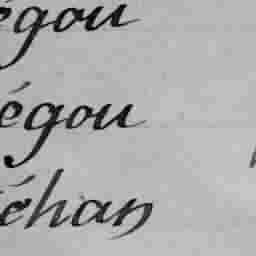 égou
égou
éhan